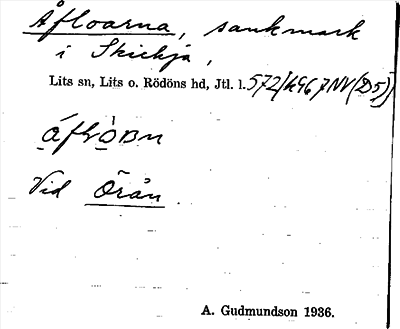 Åfloarna, sankmark
i Skickja,
Lits sn, Lits o. Rödöns hd, Jtl. l. 572/4967NV(D5)
Vid Örån
A. Gudmundson 1936.